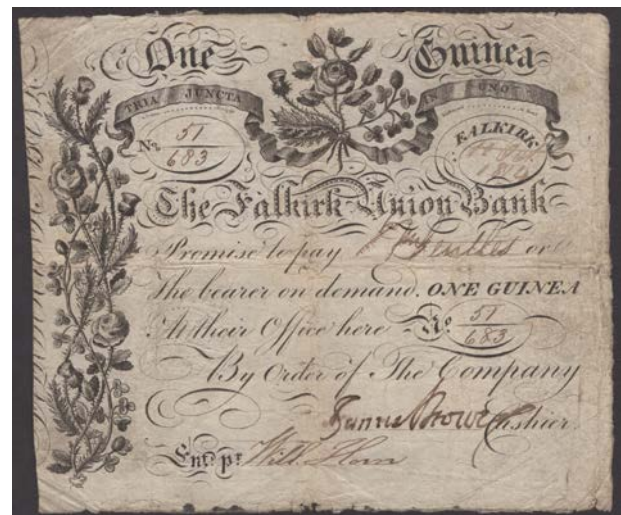 One Guinea
TRIA JUNCTA IN UNO
No. 51 FALKIRK
683
The Falkirk Union Bank
Promise to pay or
The bearer on demand, ONE GUINEA
At their Office here No. 51
683
By Order of The Company
Cashier
Entd. pr. Will Horn